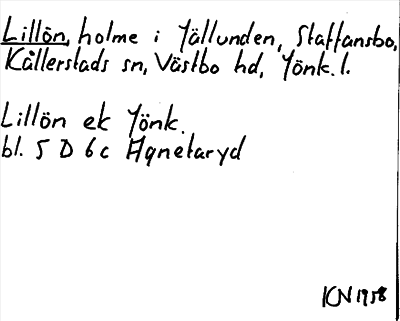 Lillön, holme i Jällunden, Staffansbo,
Kållerstads sn, Västbo hd, Jönk. l.
Lillön ek Jönk.
bl. 5 D 6 c Agnetaryd
KN 1958